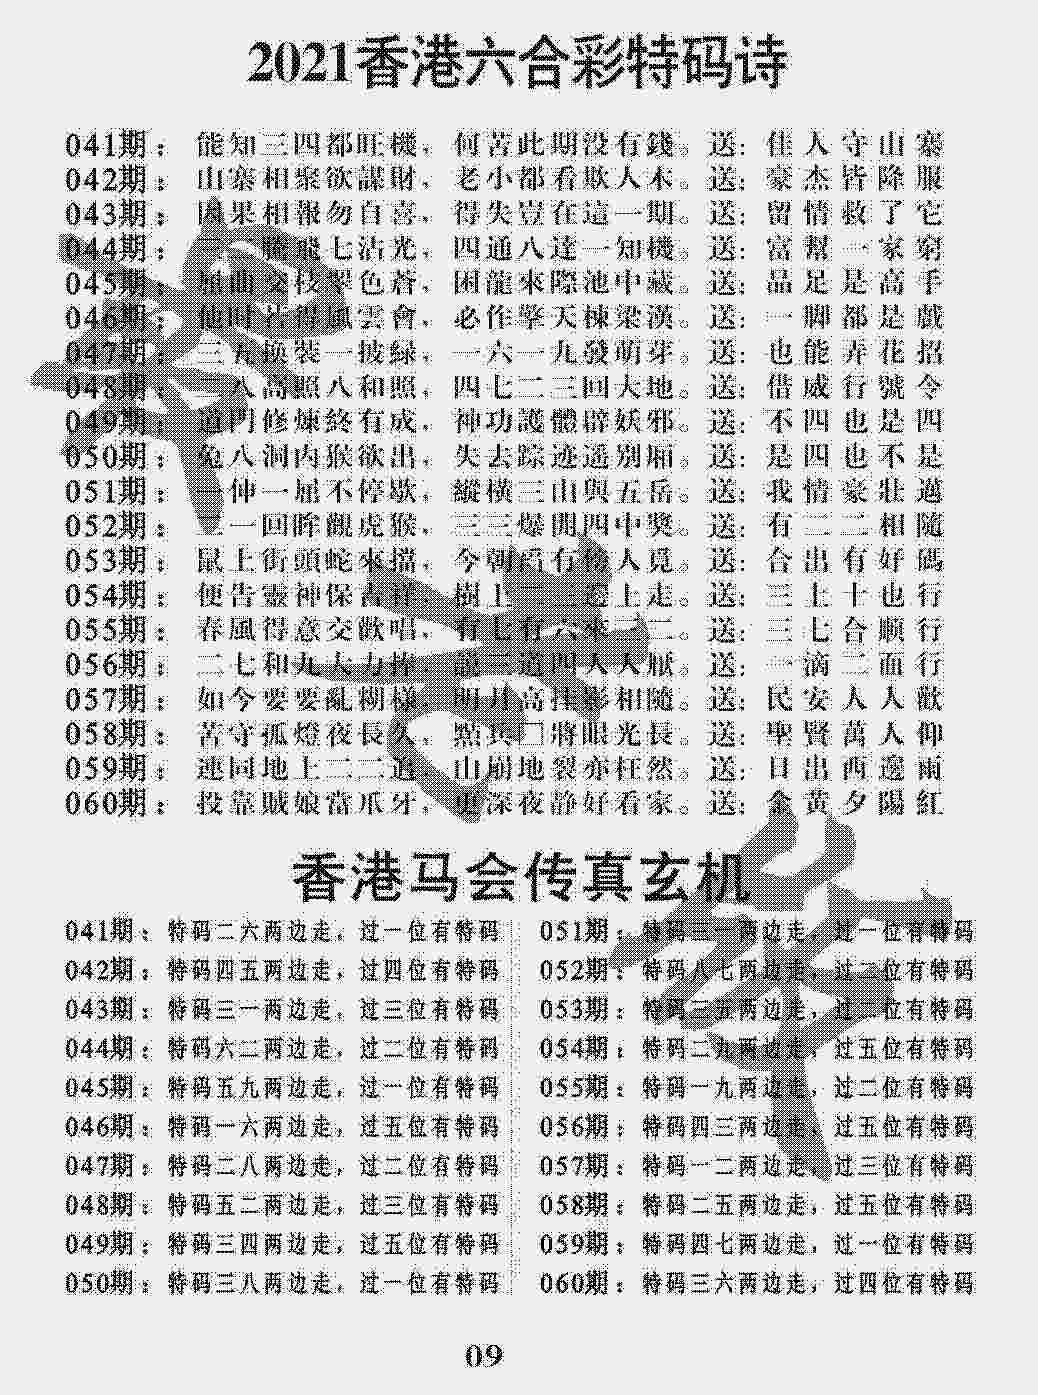 2021香港六合彩特码诗
041期：能知三四都旺機，何苦此期没有錢。送：佳人守山寨
042期：山寨相聚欲謀財，老小都看欺人木。送：豪杰皆降服
043期：因果相報勿自喜，得失豈在這一期。送：留情救了它
044期：騰飛七沾光，四通八達一知機。送：富幫一家窮
045期：屈曲交枝翠色蒼，困龍來際池中藏。送：品足是高手
046期：他时若得風雲會，必作擎天棟梁漢。送：一脚都是戲
047期：二五换裝一披緑，一六一九發萌芽。送：也能弄花招
048期：二八高照八和照，四七二三回大地。送：借威行號令
049期：道門修煉終有成，神功護體辟妖邪。送：不四也是四
050期：兔八洞内猴欲出，失去踪迹遥别厢。送：是四也不是
051期：一伸一屈不停歇，縱横三山與五岳。送：我情豪壯邁
052期：二一回眸觀虎猴，三三爆開四中獎。送：有二二相隨
053期：鼠上街頭蛇來擋，今朝看有人覓。送：合出有好碼
054期：便告靈神保吉祥，樹上邊上走。送：三上十也行
055期：春風得意交歡唱，有七有六來二二。送：三七合顺行
056期：二七和九大力捧，説二道四人人厭。送：一滴二面行
057期：如今要要亂糊樣，明月高挂影相隨。送：民安人人歡
058期：苦守孤燈夜長久，點兵□將眼光長。送：聖賢萬人仰
059期：連同地上二二追，山崩地裂亦枉然。送：日出西邊雨
060期：投靠賊娘當爪牙，更深夜静好看家。送：金黄夕陽紅
香港马会传真玄机
041期：特码二六两边走，过一位有特码
042期：特码四五两边走，过四位有特码
043期：特码三一两边走，过三位有特码
044期：特码六二两边走，过二位有特码
045期：特码五九两边走，过一位有特码
046期：特码一六两边走，过五位有特码
047期：特码二八两边走，过二位有特码
048期：特码五二两边走，过三位有特码
049期：特码三四两边走，过五位有特码
050期：特码三八两边走，过一位有特码
051期：特码三一两边走，过一位有特码
052期：特码八七两边走，过二位有特码
053期：特码三五两边走，过二位有特码
054期：特码二九两边走，过五位有特码
055期：特码一九两边走，过二位有特码
056期：特码四三两边走，过五位有特码
057期：特码一二两边走，过三位有特码
058期：特码二五两边走，过五位有特码
059期：特码四七两边走，过一位有特码
060期：特码三六两边走，过四位有特码
09